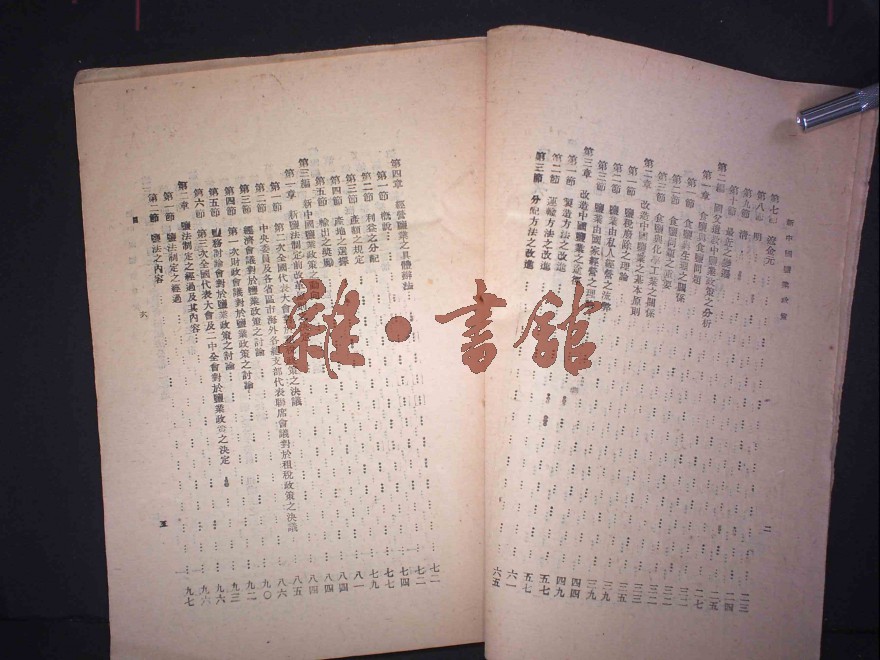 新中國鹽業政策
二
第七節 遼金元 二三
第八節 明 二四
第九節 清 二五
第十節 最近之變遷 二七
第二編 國父遺教中鹽業政策之分析
第一章 食鹽與食鹽問題
第一節 食鹽與生理之關係
第二節 食鹽與化學工業之關係
第三節 食鹽問題之重要
第二章 改造中國鹽業之基本原則
第一節 鹽稅廢除之理論
第二節 鹽業由私人經營之
第三節 鹽業由國家經營之理
第三章 改造中國鹽業之
第一節 製造方法之改進
第二節 運輸方法之改進 六一
第三節 分配方法之改進 六五
第四章 經營鹽業之具體辦法 七二
第一節 概說 七二
第二節 利益之分配 七四
第三節 產額之規定 七七
第四節 產地之選擇 七九
第五節 輸出之獎勵 八一
第三編 新中國鹽業政策之 八四
第一章 新鹽法制定前改革 八四
第一節 第二次全國代表大會對於鹽稅政策之決議
第二節 中央委員及各省區市海外各總支部代表聯席會議對於租稅政策之決議
第三節 經濟會議對於鹽業政策之討論
第四節 第一次財政會議對於鹽業政策之討論
第五節 鹽務討論會對於鹽業政策之討論
第六節 第三次全國代表大會及一中全會對於鹽業政策之決定
第二章 鹽法制定之經過及其內容
第一節 鹽法制定之經過
第二節 鹽法之內容
雜·書館